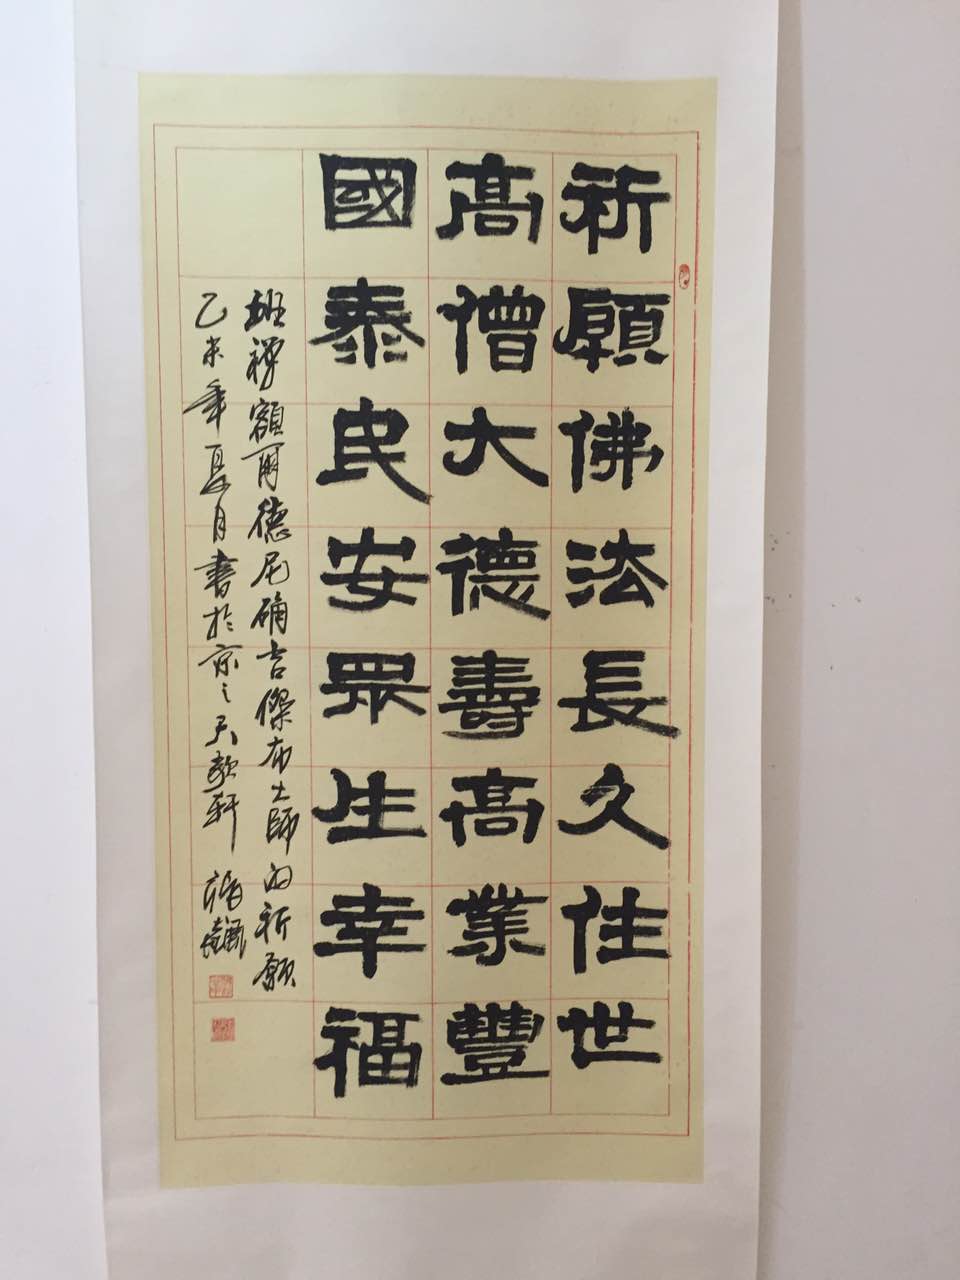 祈願佛法長久住世
高僧大德壽高業豐
國泰民安眾生幸福
班禪額爾德尼確吉傑布大師的祈願
乙未年夏月書於京之天歌軒